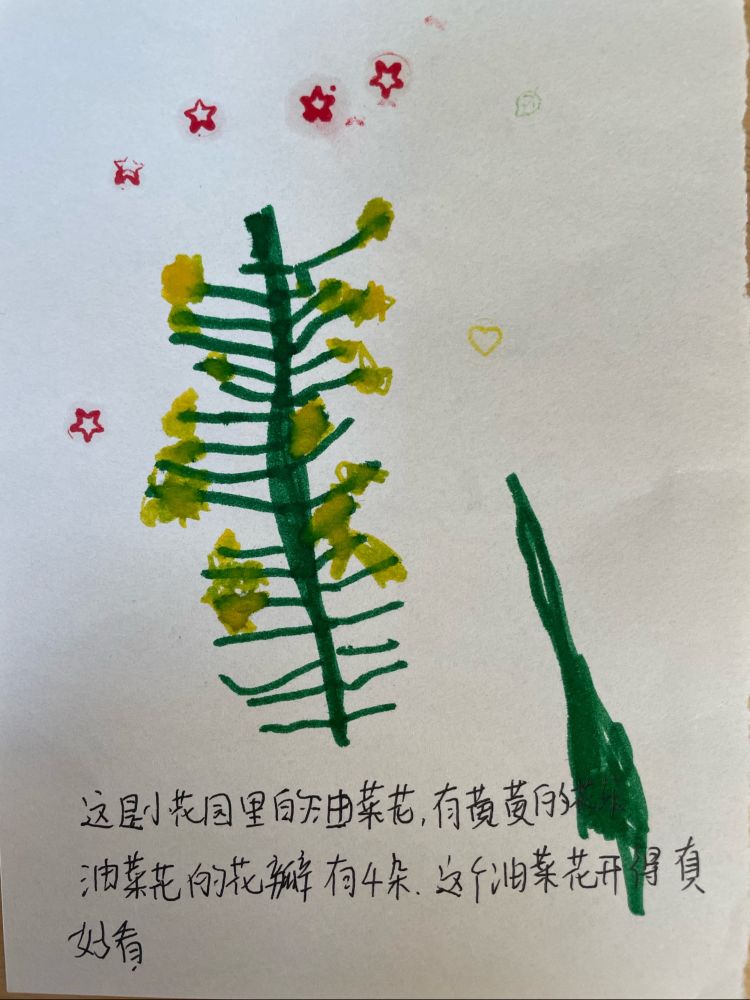 这是小花园里的油菜花,有黄黄的花
油菜花的花瓣有4朵.这个油菜花开得真
好看